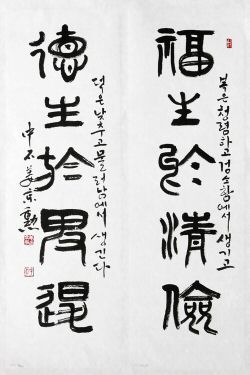 福生於清儉
복은 청렴하고 검소함에서 생기고
德生於卑退
덕은 낮추고 물러남에서 생긴다
中石 姜京勳